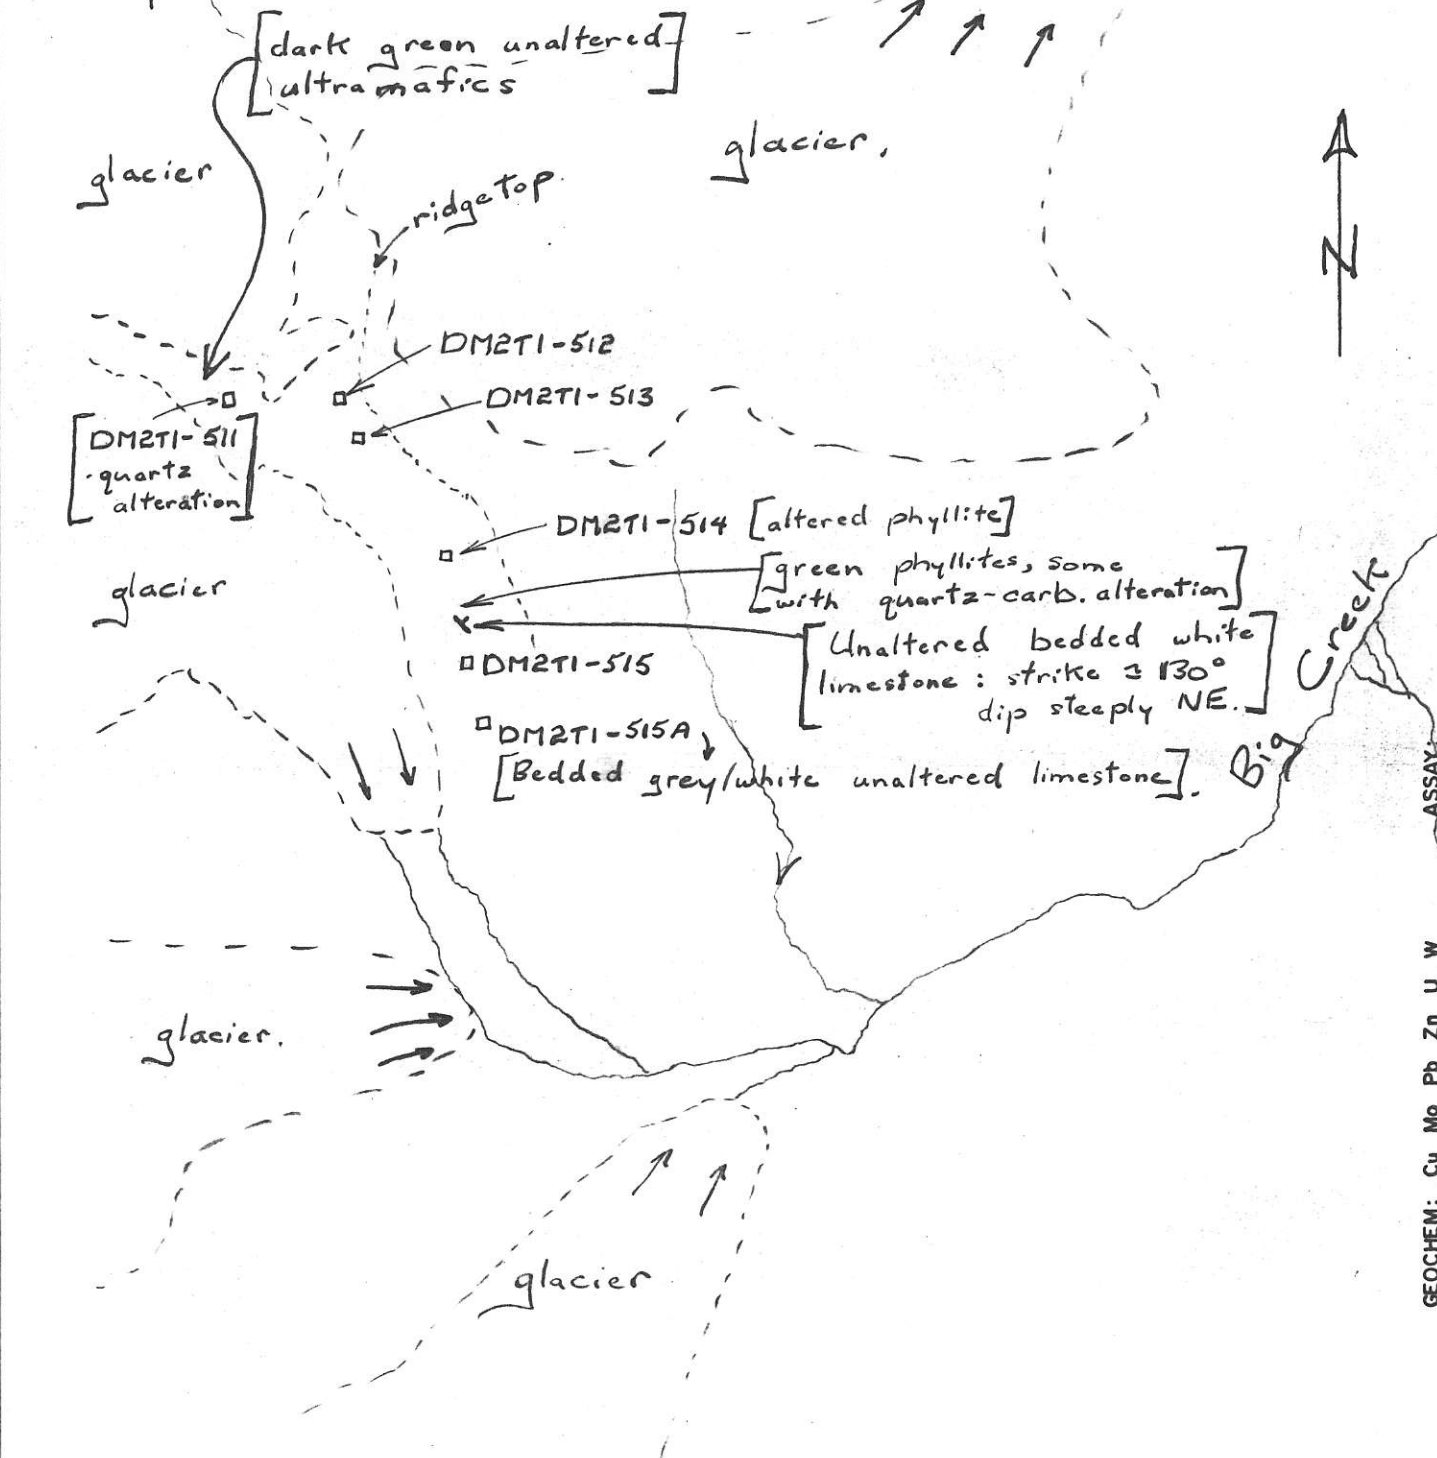 [dark green unaltered
ultramafics]
glacier
glacier.
ridgetop.
N
DM2T1-512
DM2T1-513
[DM2T1-511
-quartz
alteration]
DM2T1-514 [altered phyllite]
[green phyllites, some
with quartz-carb. alteration]
glacier
[Unaltered bedded white
limestone : strike ± 130°
dip steeply NE.]
DM2T1-515
DM2T1-515A
[Bedded grey/white unaltered limestone].
Big Creek
glacier.
glacier
ASSAY
GEOCHEM: Cu Mo Pb Zn U W